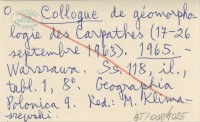 O Colloque de géomorpho-
logie des Carpathes (17-26
septembre 1963). 1965. -
Warszawa. Ss. 118, il.,
tabl. 1, 8°. Geographia
Polonica 9. Red. M. Klima-
szewski.